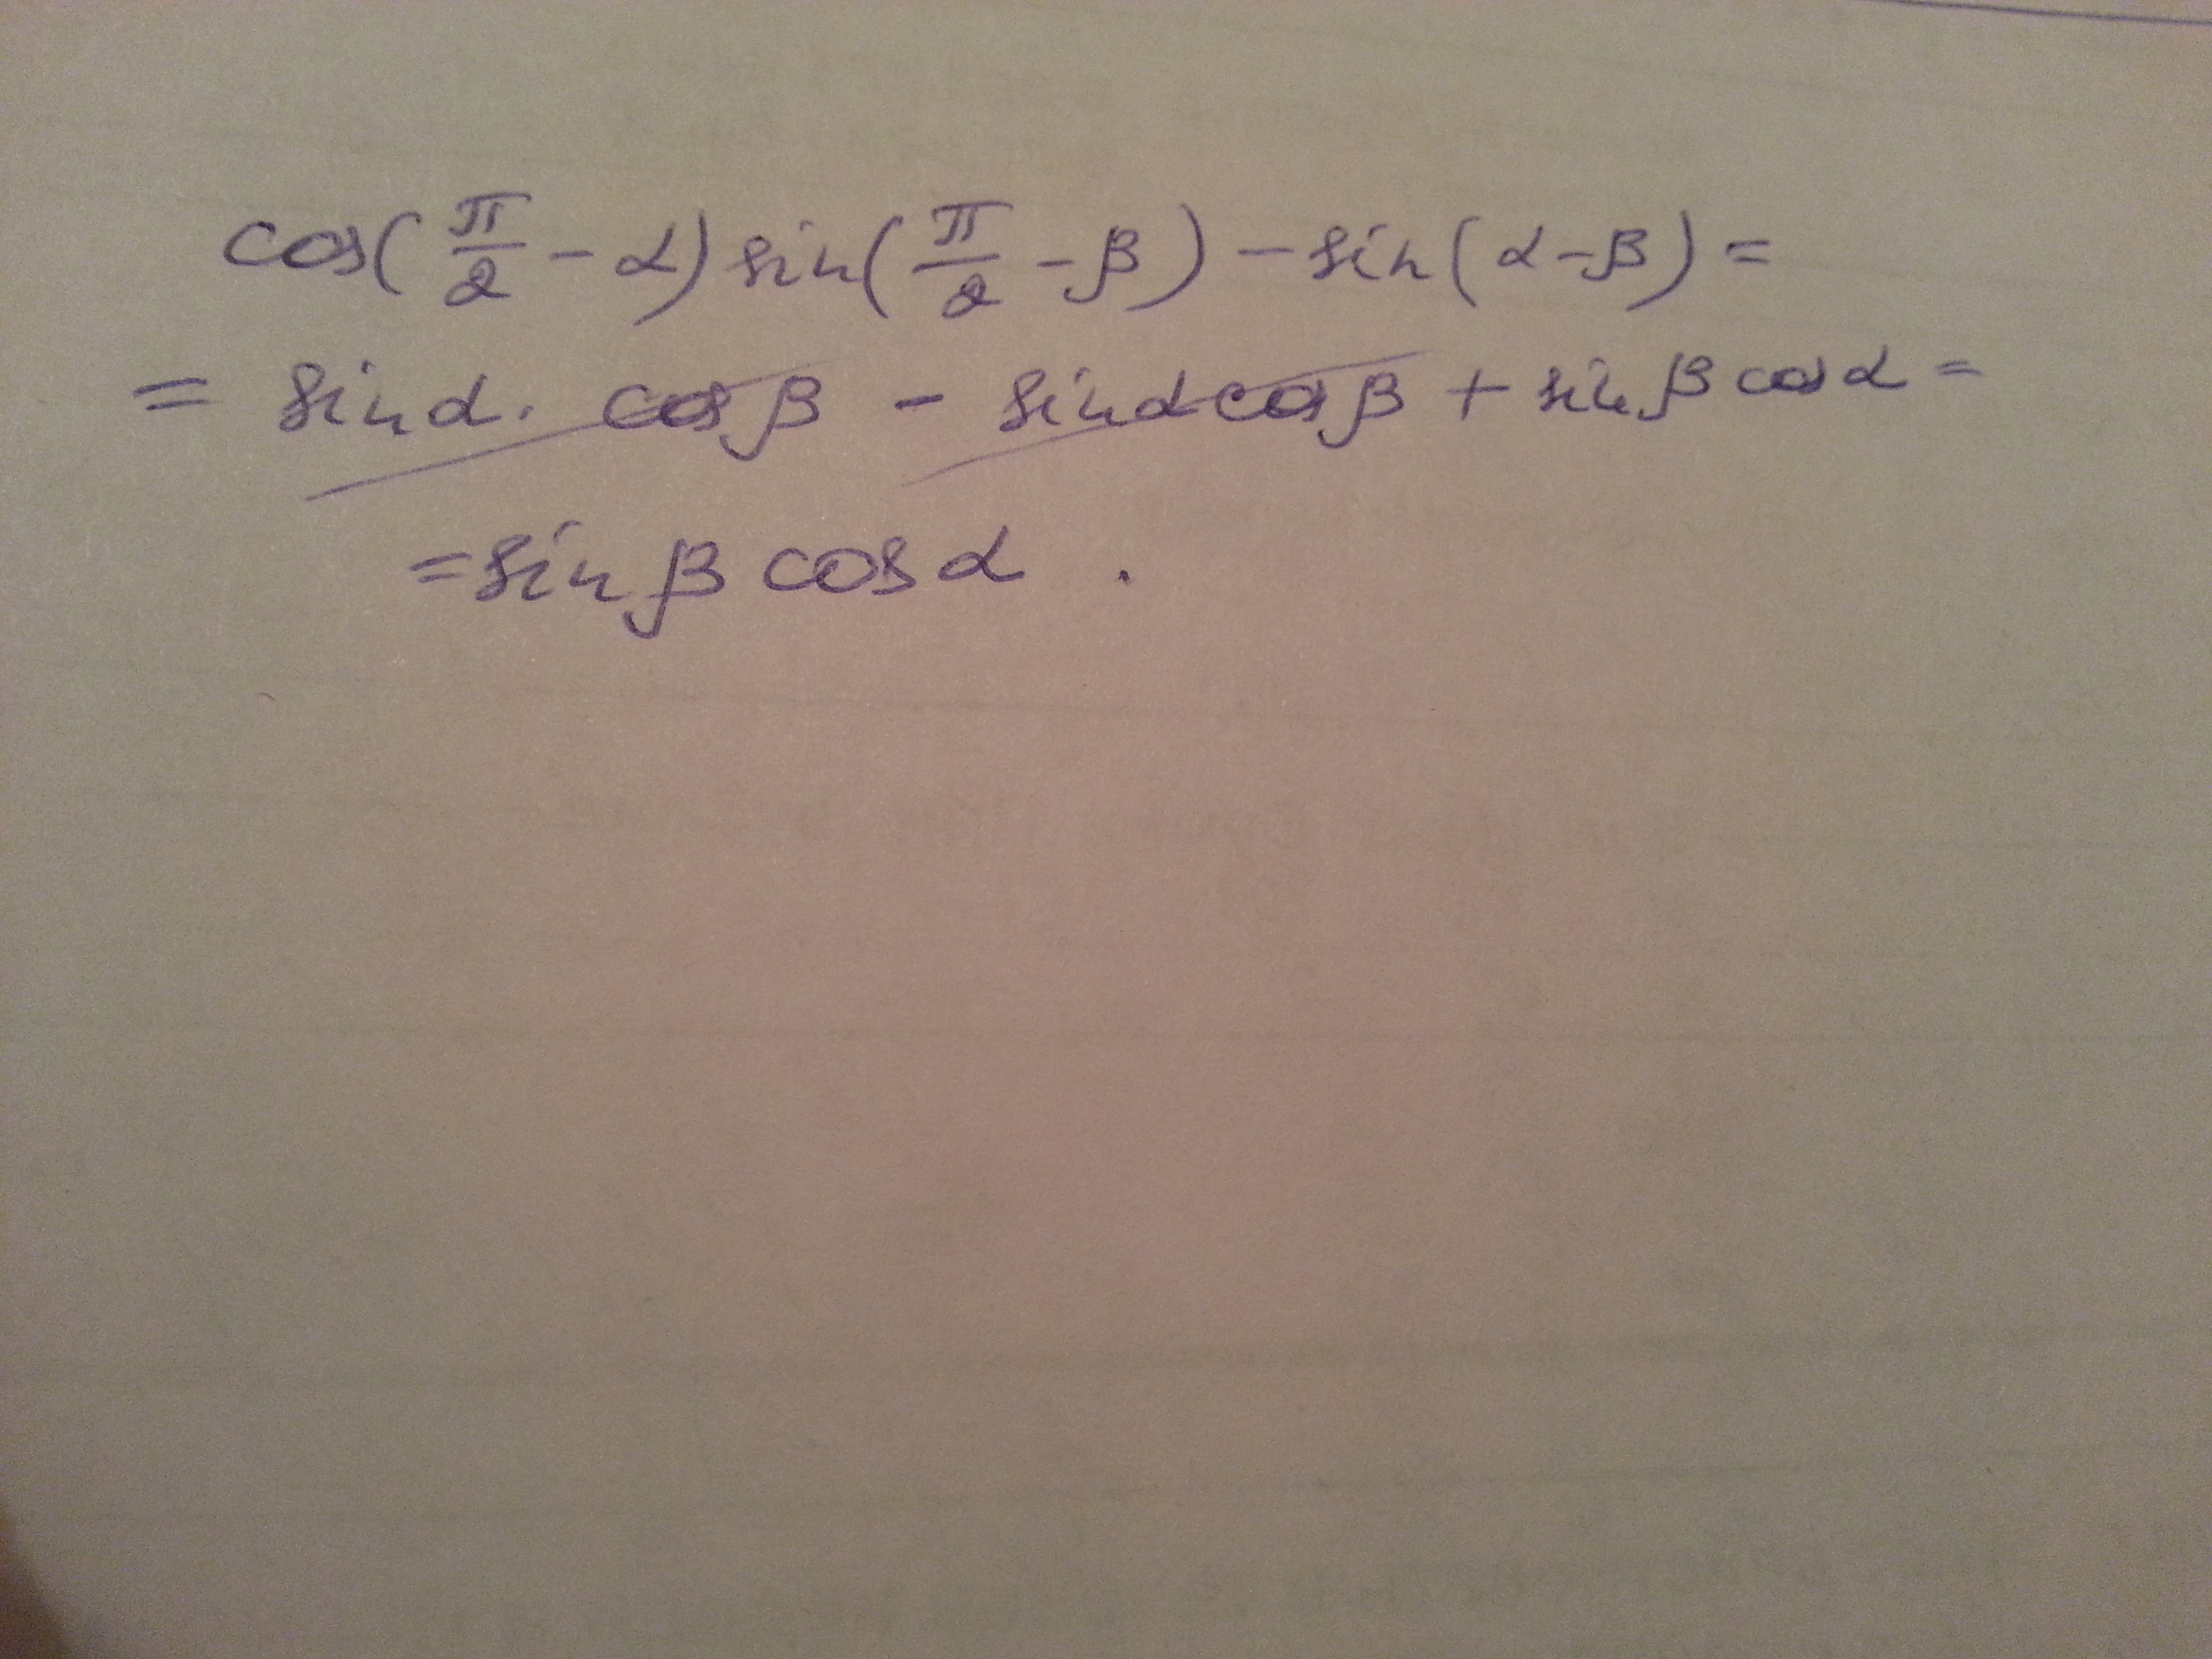 cos(π/2 - α) sin(π/2 - β) - sin(α - β) =
= sin α · cos β - sin α cos β + sin β cos α =
= sin β cos α .